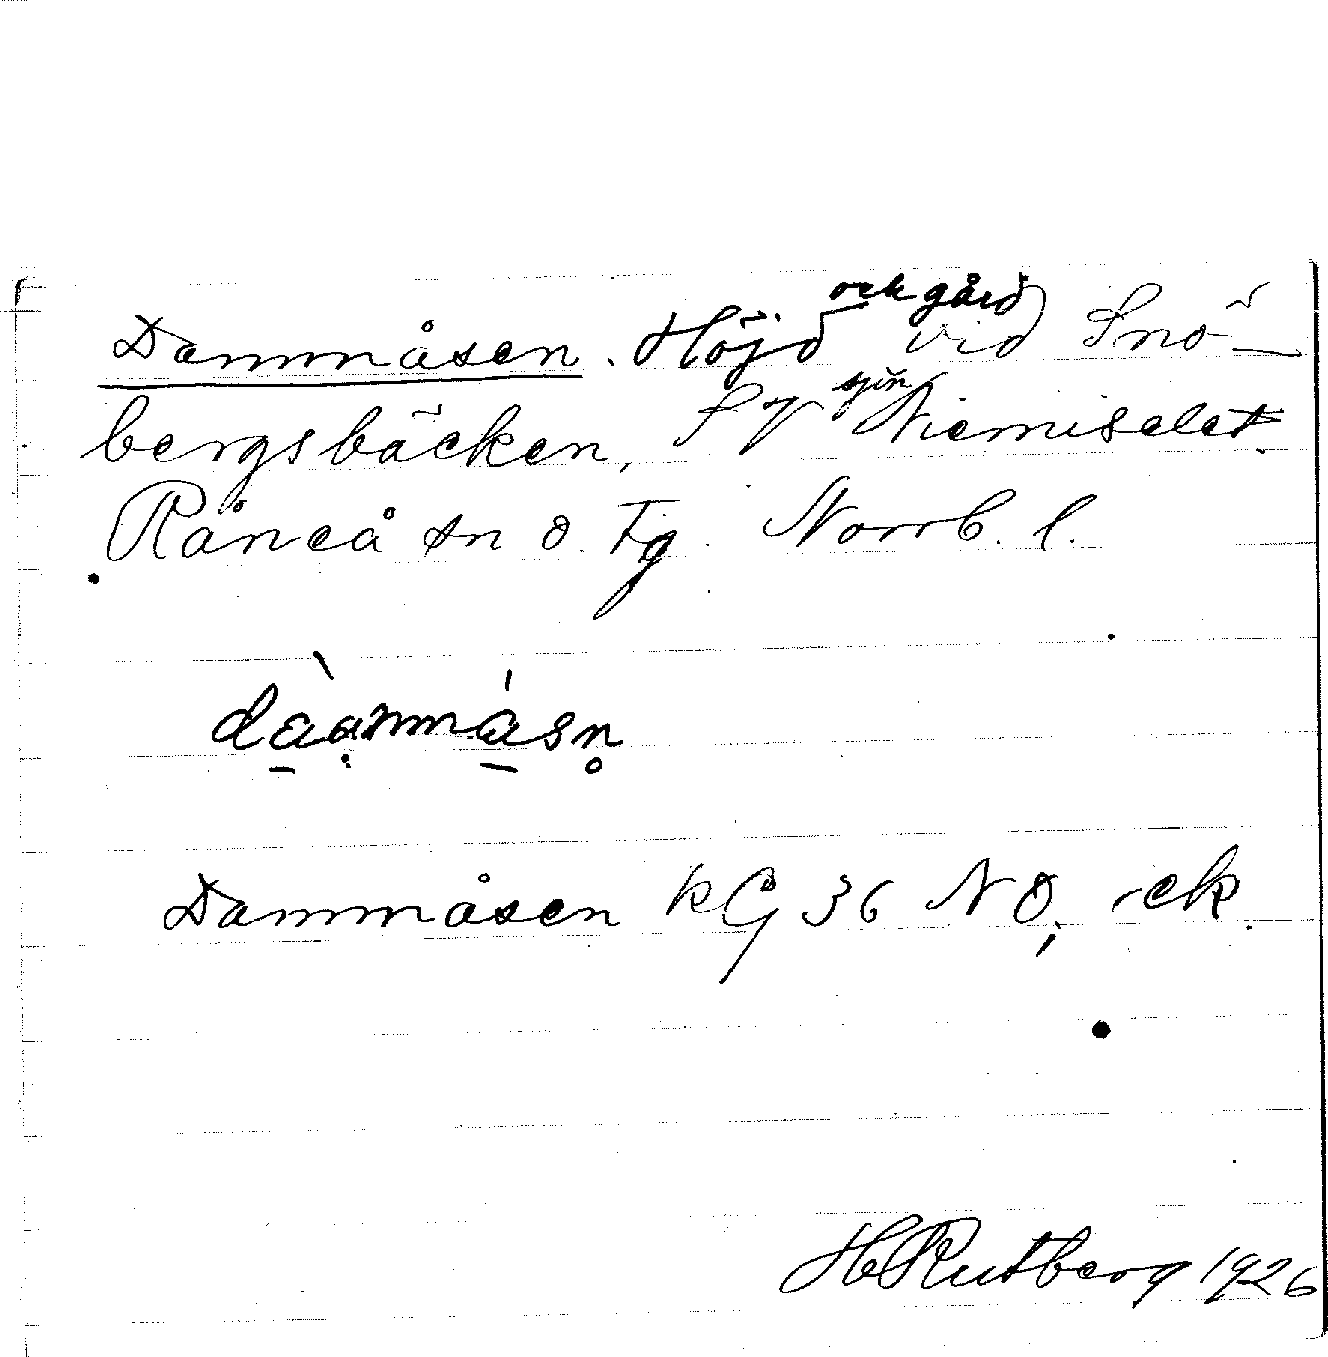 Dammåsen. Höjd och gård vid Snö-
bergsbäcken, SV sjön Niemiselet
Råneå sn o. tg. Norrb. l.
dàạmmåsn̥
Dammåsen kG 36 NO, ek.
H Rutberg 1926